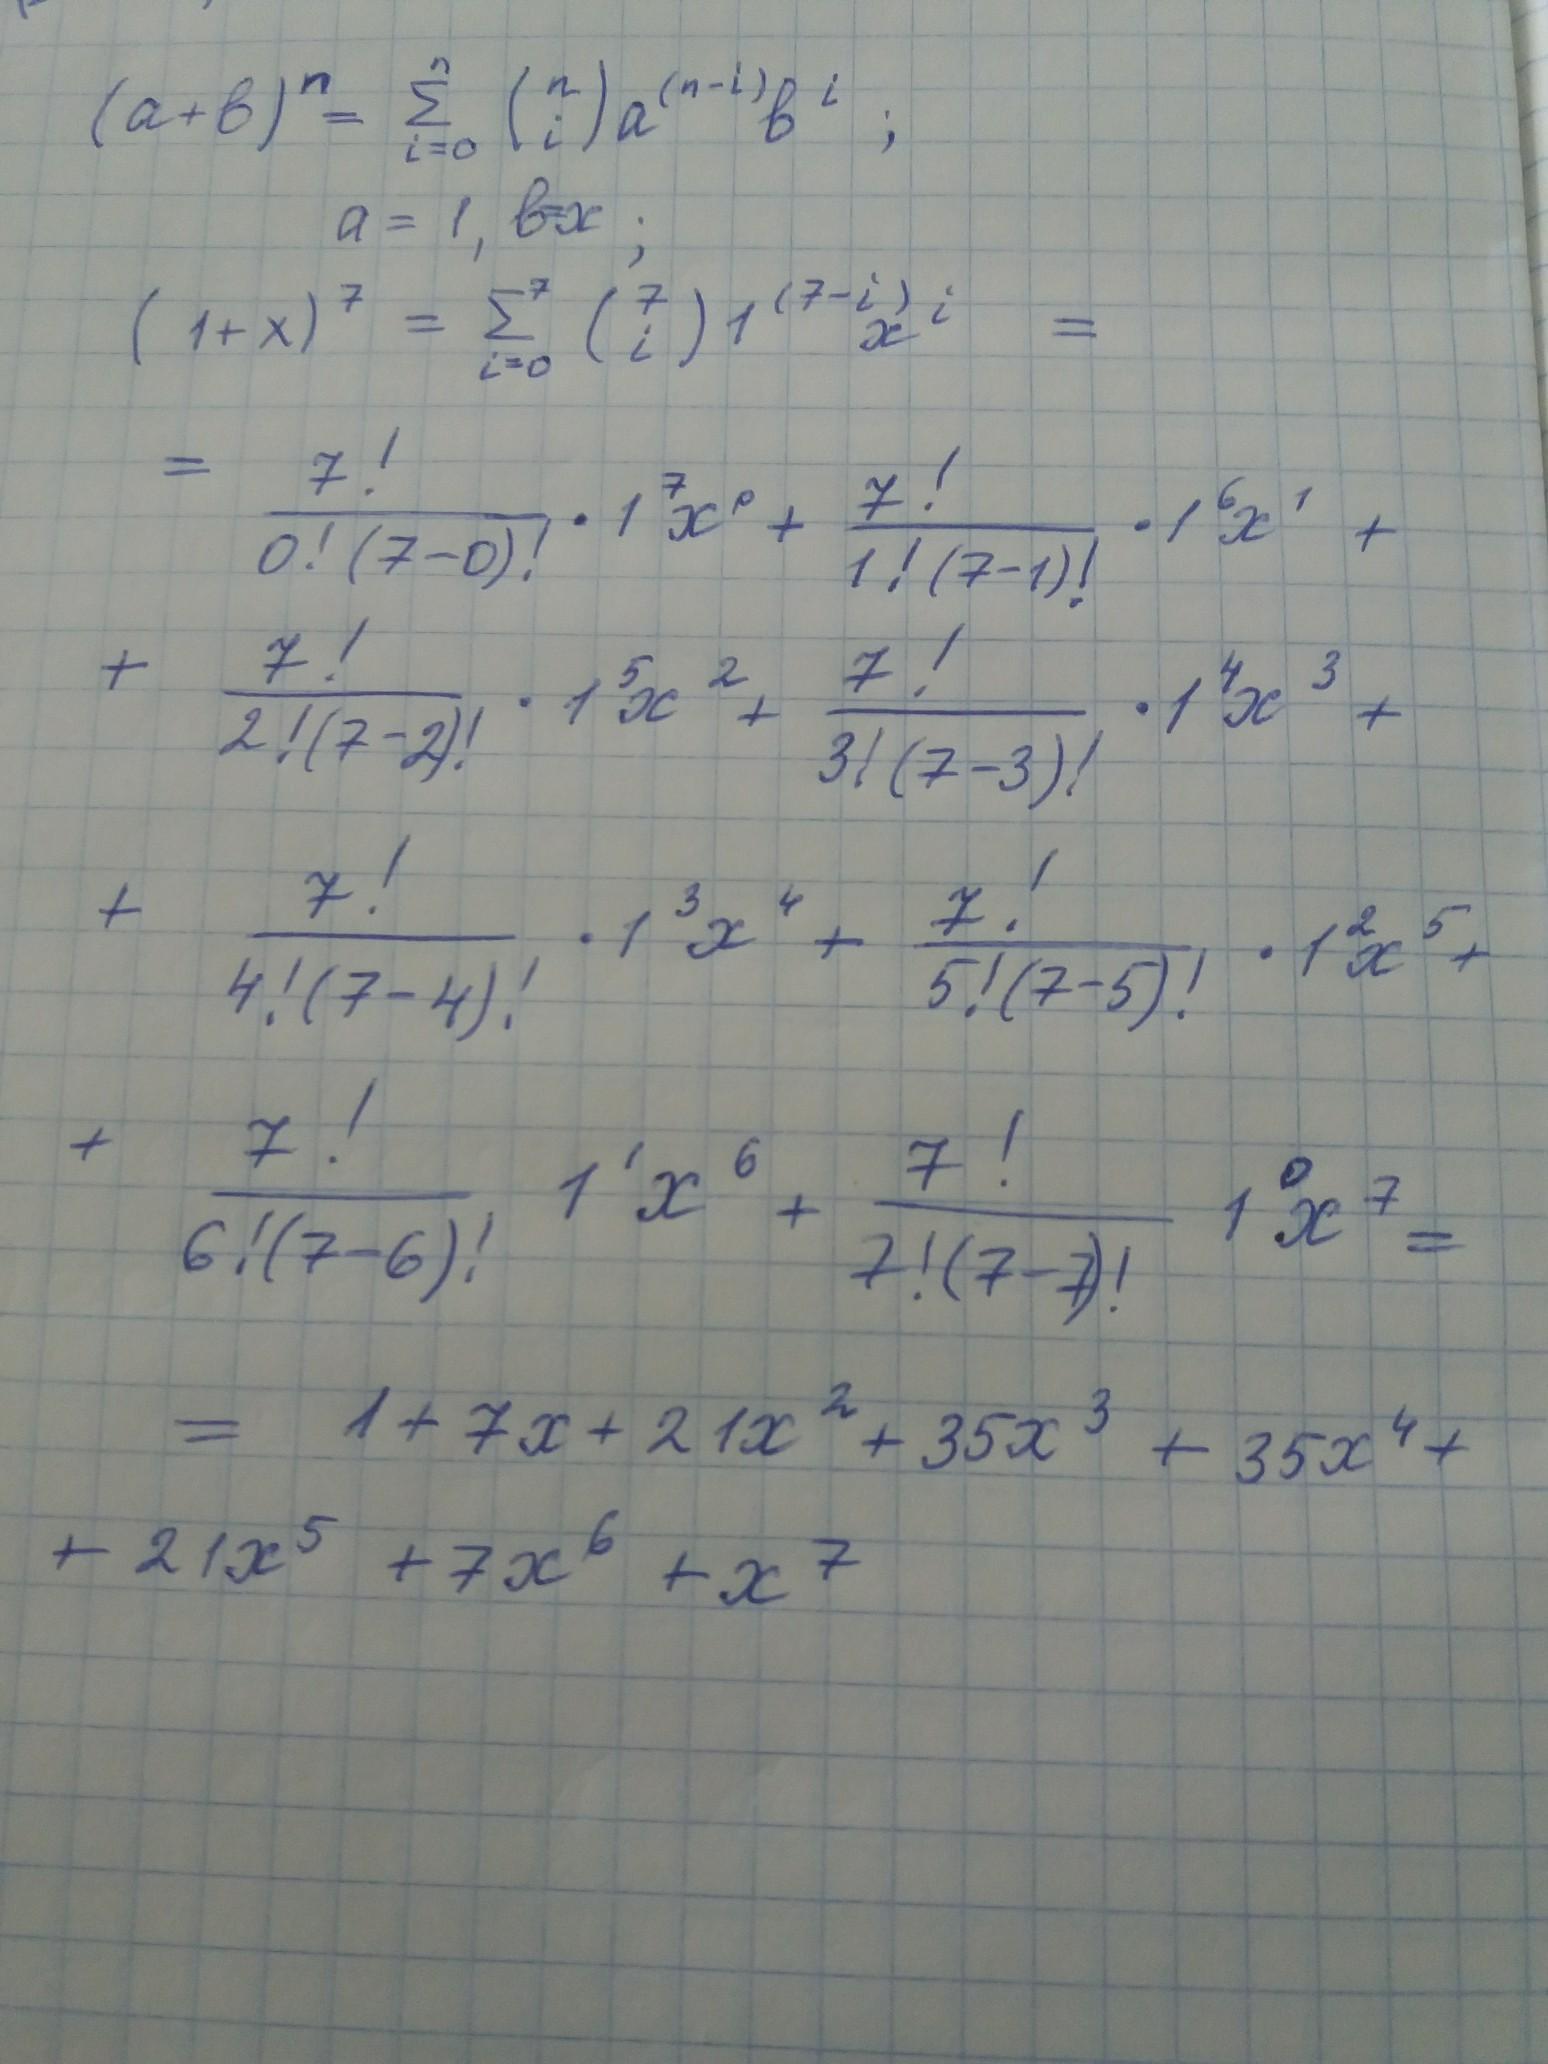 (a+b)^n = \sum_{i=0}^{n} \binom{n}{i} a^{(n-i)} b^i ;
a = 1, b=x ;
(1+x)^7 = \sum_{i=0}^{7} \binom{7}{i} 1^{(7-i)} x^i =
= \frac{7!}{0!(7-0)!} · 1^7 x^0 + \frac{7!}{1!(7-1)!} · 1^6 x^1 +
+ \frac{7!}{2!(7-2)!} · 1^5 x^2 + \frac{7!}{3!(7-3)!} · 1^4 x^3 +
+ \frac{7!}{4!(7-4)!} · 1^3 x^4 + \frac{7!}{5!(7-5)!} · 1^2 x^5 +
+ \frac{7!}{6!(7-6)!} 1^1 x^6 + \frac{7!}{7!(7-7)!} 1^0 x^7 =
= 1 + 7x + 21x^2 + 35x^3 + 35x^4 +
+ 21x^5 + 7x^6 + x^7